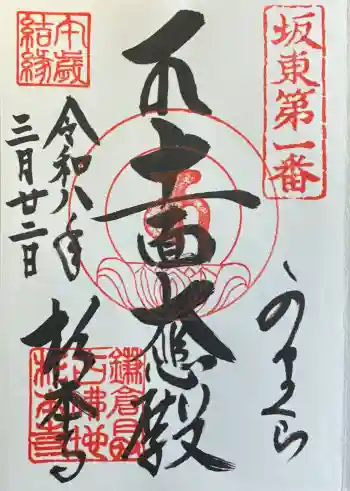 坂東第一番
かまくら
十一面大悲殿
鎌倉最
古佛地
杉本寺
午歳
結縁
令和八年
三月廿二日
杉本寺